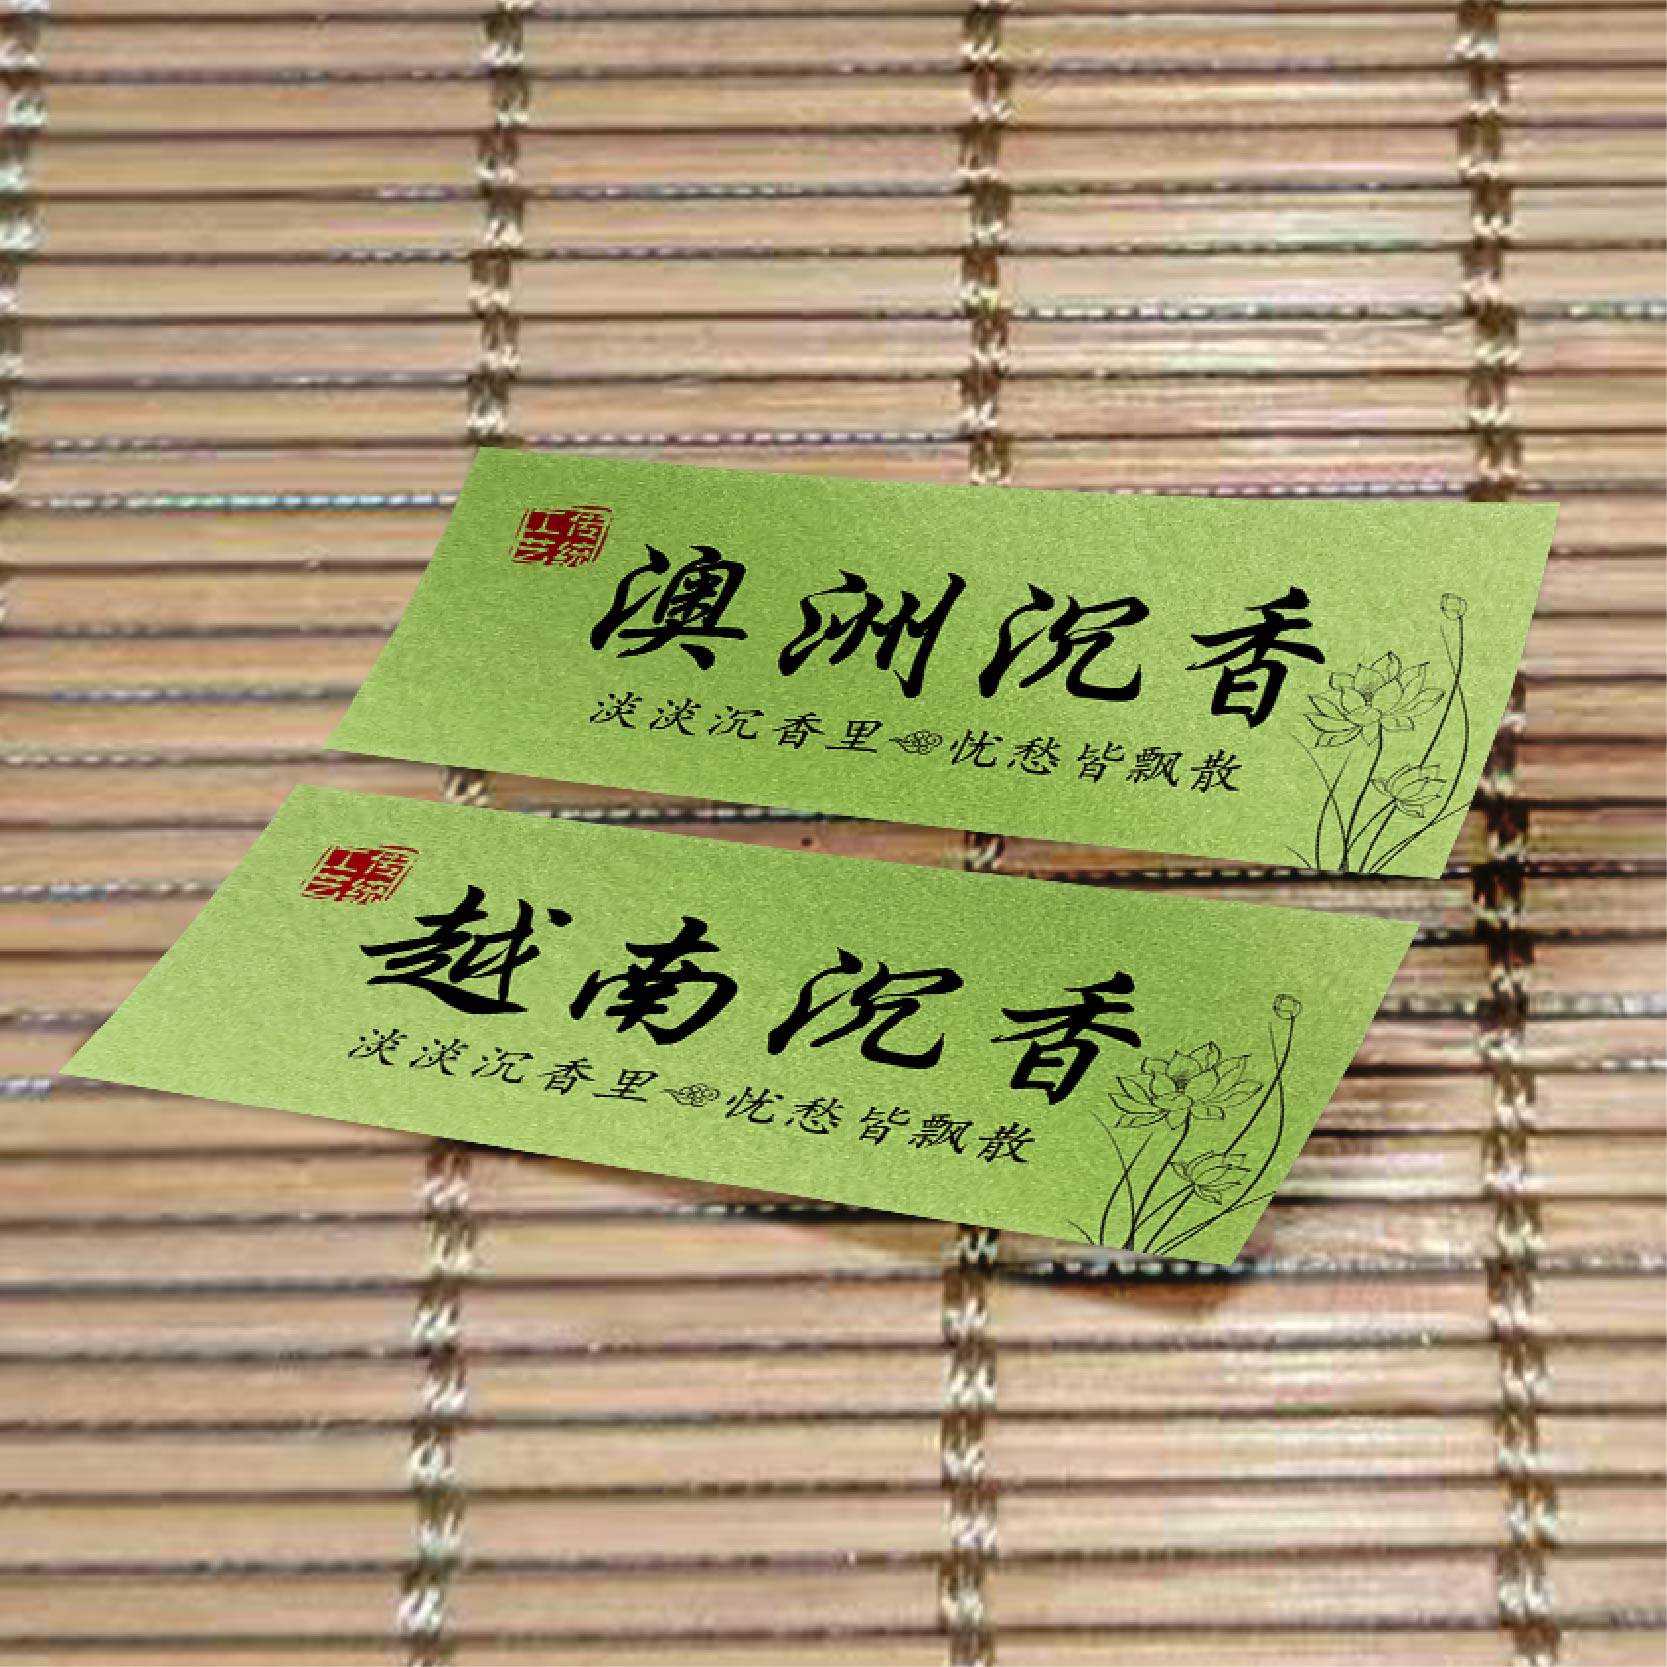 传统
工艺
澳洲沉香
淡淡沉香里 忧愁皆飘散
传统
工艺
越南沉香
淡淡沉香里 忧愁皆飘散